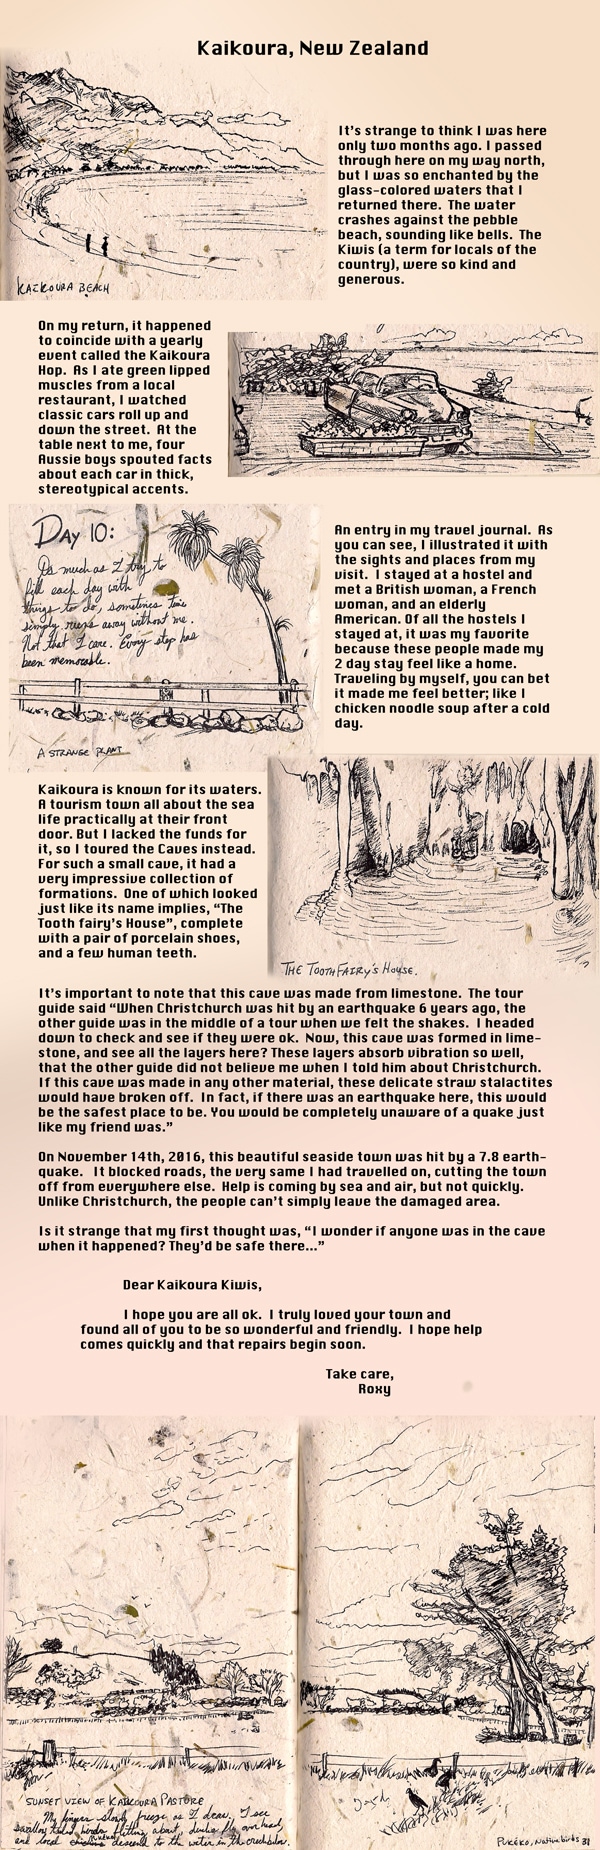 Kaikoura, New Zealand
It's strange to think I was here
only two months ago. I passed
through here on my way north,
but I was so enchanted by the
glass-colored waters that I
returned there. The water
crashes against the pebble
beach, sounding like bells. The
Kiwis (a term for locals of the
country), were so kind and
generous.
KAIKOURA BEACH
On my return, it happened
to coincide with a yearly
event called the Kaikoura
Hop. As I ate green lipped
muscles from a local
restaurant, I watched
classic cars roll up and
down the street. At the
table next to me, four
Aussie boys spouted facts
about each car in thick,
stereotypical accents.
DAY 10:
As much as I try to
fill each day with
things to do, sometimes time
simply runs away without me.
Not that I care. Every step has
been memorable.
A STRANGE PLANT
An entry in my travel journal. As
you can see, I illustrated it with
the sights and places from my
visit. I stayed at a hostel and
met a British woman, a French
woman, and an elderly
American. Of all the hostels I
stayed at, it was my favorite
because these people made my
2 day stay feel like a home.
Traveling by myself, you can bet
it made me feel better; like I
chicken noodle soup after a cold
day.
Kaikoura is known for its waters.
A tourism town all about the sea
life practically at their front
door. But I lacked the funds for
it, so I toured the Caves instead.
For such a small cave, it had a
very impressive collection of
formations. One of which looked
just like its name implies, "The
Tooth fairy's House", complete
with a pair of porcelain shoes,
and a few human teeth.
THE TOOTH FAIRY'S HOUSE.
It's important to note that this cave was made from limestone. The tour
guide said "When Christchurch was hit by an earthquake 6 years ago, the
other guide was in the middle of a tour when we felt the shakes. I headed
down to check and see if they were ok. Now, this cave was formed in lime-
stone, and see all the layers here? These layers absorb vibration so well,
that the other guide did not believe me when I told him about Christchurch.
If this cave was made in any other material, these delicate straw stalactites
would have broken off. In fact, if there was an earthquake here, this would
be the safest place to be. You would be completely unaware of a quake just
like my friend was."
On November 14th, 2016, this beautiful seaside town was hit by a 7.8 earth-
quake. It blocked roads, the very same I had travelled on, cutting the town
off from everywhere else. Help is coming by sea and air, but not quickly.
Unlike Christchurch, the people can't simply leave the damaged area.
Is it strange that my first thought was, "I wonder if anyone was in the cave
when it happened? They'd be safe there..."
Dear Kaikoura Kiwis,
I hope you are all ok. I truly loved your town and
found all of you to be so wonderful and friendly. I hope help
comes quickly and that repairs begin soon.
Take care,
Roxy
SUNSET VIEW OF KAIKOURA PASTURE
My fingers slowly freeze as I draw. I see
swallow tailed birds flitting about, ducks fly over head,
and local pukeko descend to the water in the creek below.
PUKEKO, Native birds